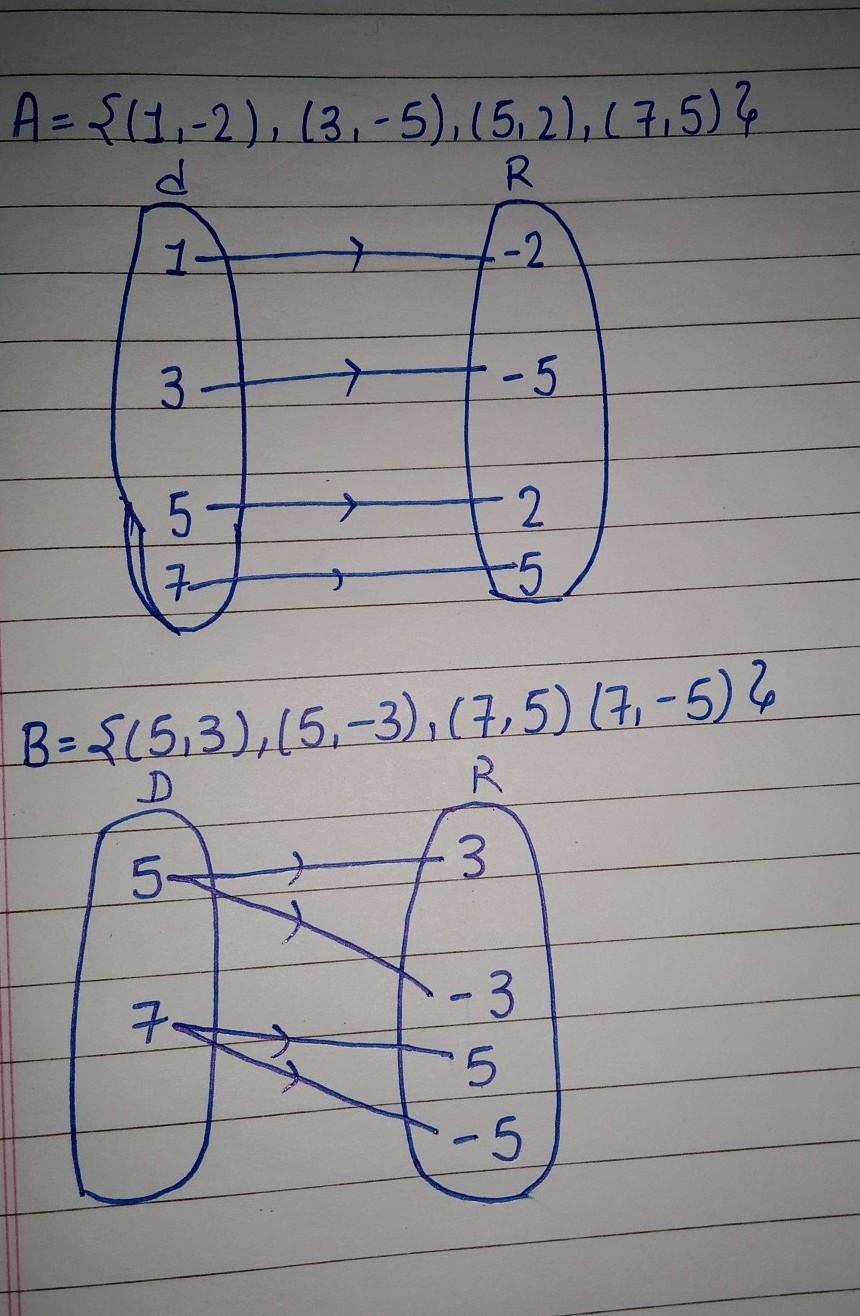 A = {(1,-2), (3,-5), (5,2), (7,5)}
d R
1 -2
3 -5
5 2
7 5
B = {(5,3), (5,-3), (7,5) (7,-5)}
D R
5 3
-3
7
5
-5